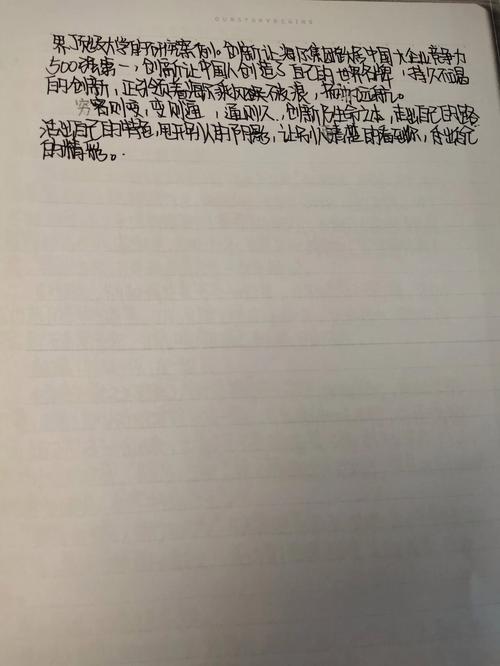 OURSTORYBEGINS
界顶级大学的研究案例。创新让海尔集团成为中国大企业竞争力
500强第一,创新让中国人创造了自己的世界名牌,持久不竭
的创新,正引领着海尔乘风破浪,
穷则变,变则通,通则久,创新乃生存之本,走出自己的路
活出自己的特色,甩开别人的阴影,让别人清楚的看到你,
的精彩。